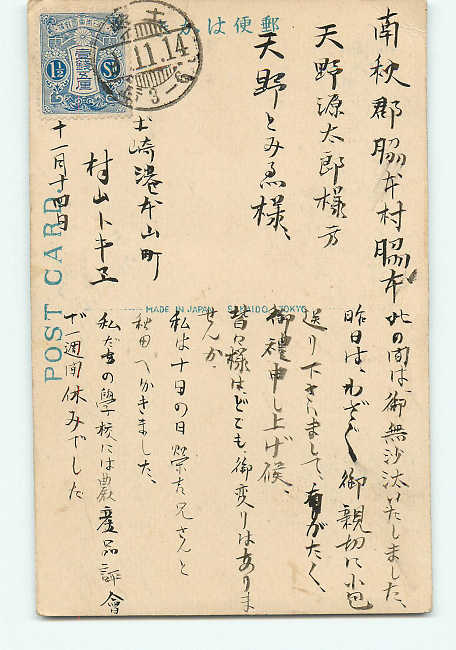 郵便はかき
壹錢五厘
1½ Sn
11.14
南秋郡脇本村脇本
天野源太郎様方
天野とみゑ様、
土崎港本山町
村山トキヱ
十一月十四日
POST CARD
MADE IN JAPAN SEKAIDO TOKYO
此の間は、御無沙汰いたしました、
昨日は、わざ〳〵御親切に小包
送り下さいまして有りがたく、
御禮申し上げ候、
皆々様は、どこも、御変りはありま
せんか、
私は十日の日榮太兄さんと
秋田へかきました、
私だちの學校には農産品評會
で一週間休みでした